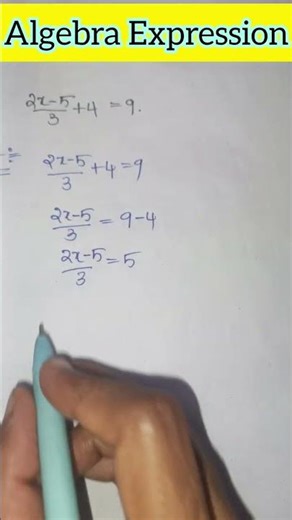 Algebra Expression
2x-5/3 + 4 = 9.
2x-5/3 + 4 = 9
2x-5/3 = 9-4
2x-5/3 = 5